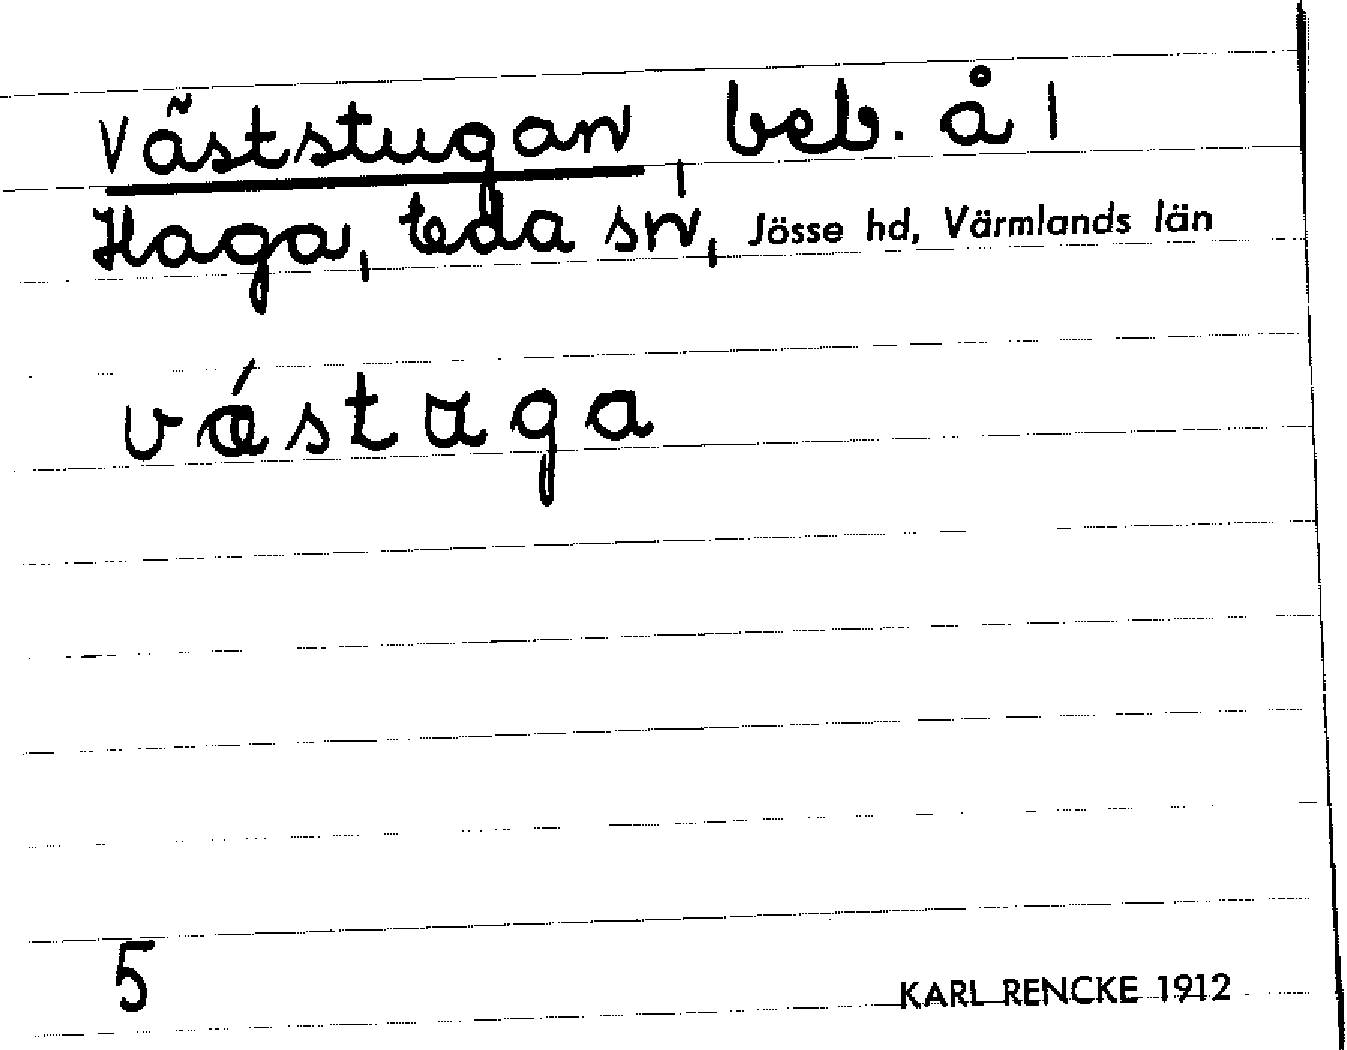 Väststugan, beb. å 1
Haga, Eda sn, Jösse hd, Värmlands län
vǽstuga
5
KARL RENCKE 1912